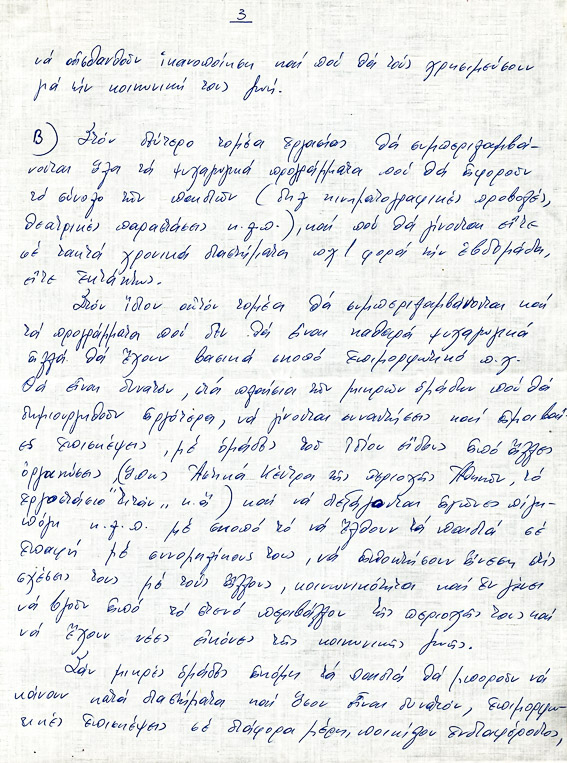 3
νά αἰσθανθοῦν ἱκανοποίηση καί πού θά τούς χρησιμεύσουν
γιά τήν κοινωνική τους ζωή.
Β) Στόν δεύτερο τομέα ἐργασίας θά συμπεριλαμβά-
νονται ὅλα τά ψυχαγωγικά προγράμματα πού θά ἀφοροῦν
τό σύνολο τῶν παιδιῶν (δηλ κινηματογραφικές προβολές,
θεατρικές παραστάσεις κ.λ.π.), καί πού θά γίνονται εἴτε
σέ τακτά χρονικά διαστήματα πχ 1 φορά τήν ἑβδομάδα,
εἴτε ἐκτάκτως.
Στόν ἴδιον αὐτόν τομέα θά συμπεριλαμβάνονται καί
τά προγράμματα πού δέν θά εἶναι καθαρά ψυχαγωγικά
ἀλλά θά ἔχουν βασικά σκοπό ἐπιμορφωτικό π.χ.
Θά εἶναι δυνατόν, στά πλαίσια τῶν μικρῶν ὁμάδων πού θά
δημιουργηθοῦν ἀργότερα, νά γίνονται συναντήσεις καί ἀμοιβαῖ-
ες ἐπισκέψεις, μέ ὁμάδες τοῦ ἰδίου εἴδους ἀπό ἄλλες
ὀργανώσεις, (ὅπως Ἀστικά Κέντρα τῆς περιοχῆς Ἀθηνῶν, τό
ἐργοστάσιο "Τιτάν" κ.ἄ) καί νά διεξάγονται ἀγῶνες πίγκ-
πόγκ κ.λ.π. μέ σκοπό τό νά ἔλθουν τά παιδιά σέ
ἐπαφή μέ συνομηλίκους τους, νά ἀποκτήσουν ἄνεση στίς
σχέσεις τους μέ τούς ἄλλους, κοινωνικότητα καί ἐν γένει
νά βγοῦν ἀπό τό στενό περιβάλλον τῆς περιοχῆς τους καί
νά ἔχουν νέες εἰκόνες τῆς κοινωνικῆς ζωῆς.
Σάν μικρές ὁμάδες ἀκόμη τά παιδιά θά μποροῦν νά
κάνουν κατά διαστήματα καί ὅσον εἶναι δυνατόν, ἐπιμορφω-
τικές ἐπισκέψεις σέ διάφορα μέρη, ποικίλου ἐνδιαφέροντος,